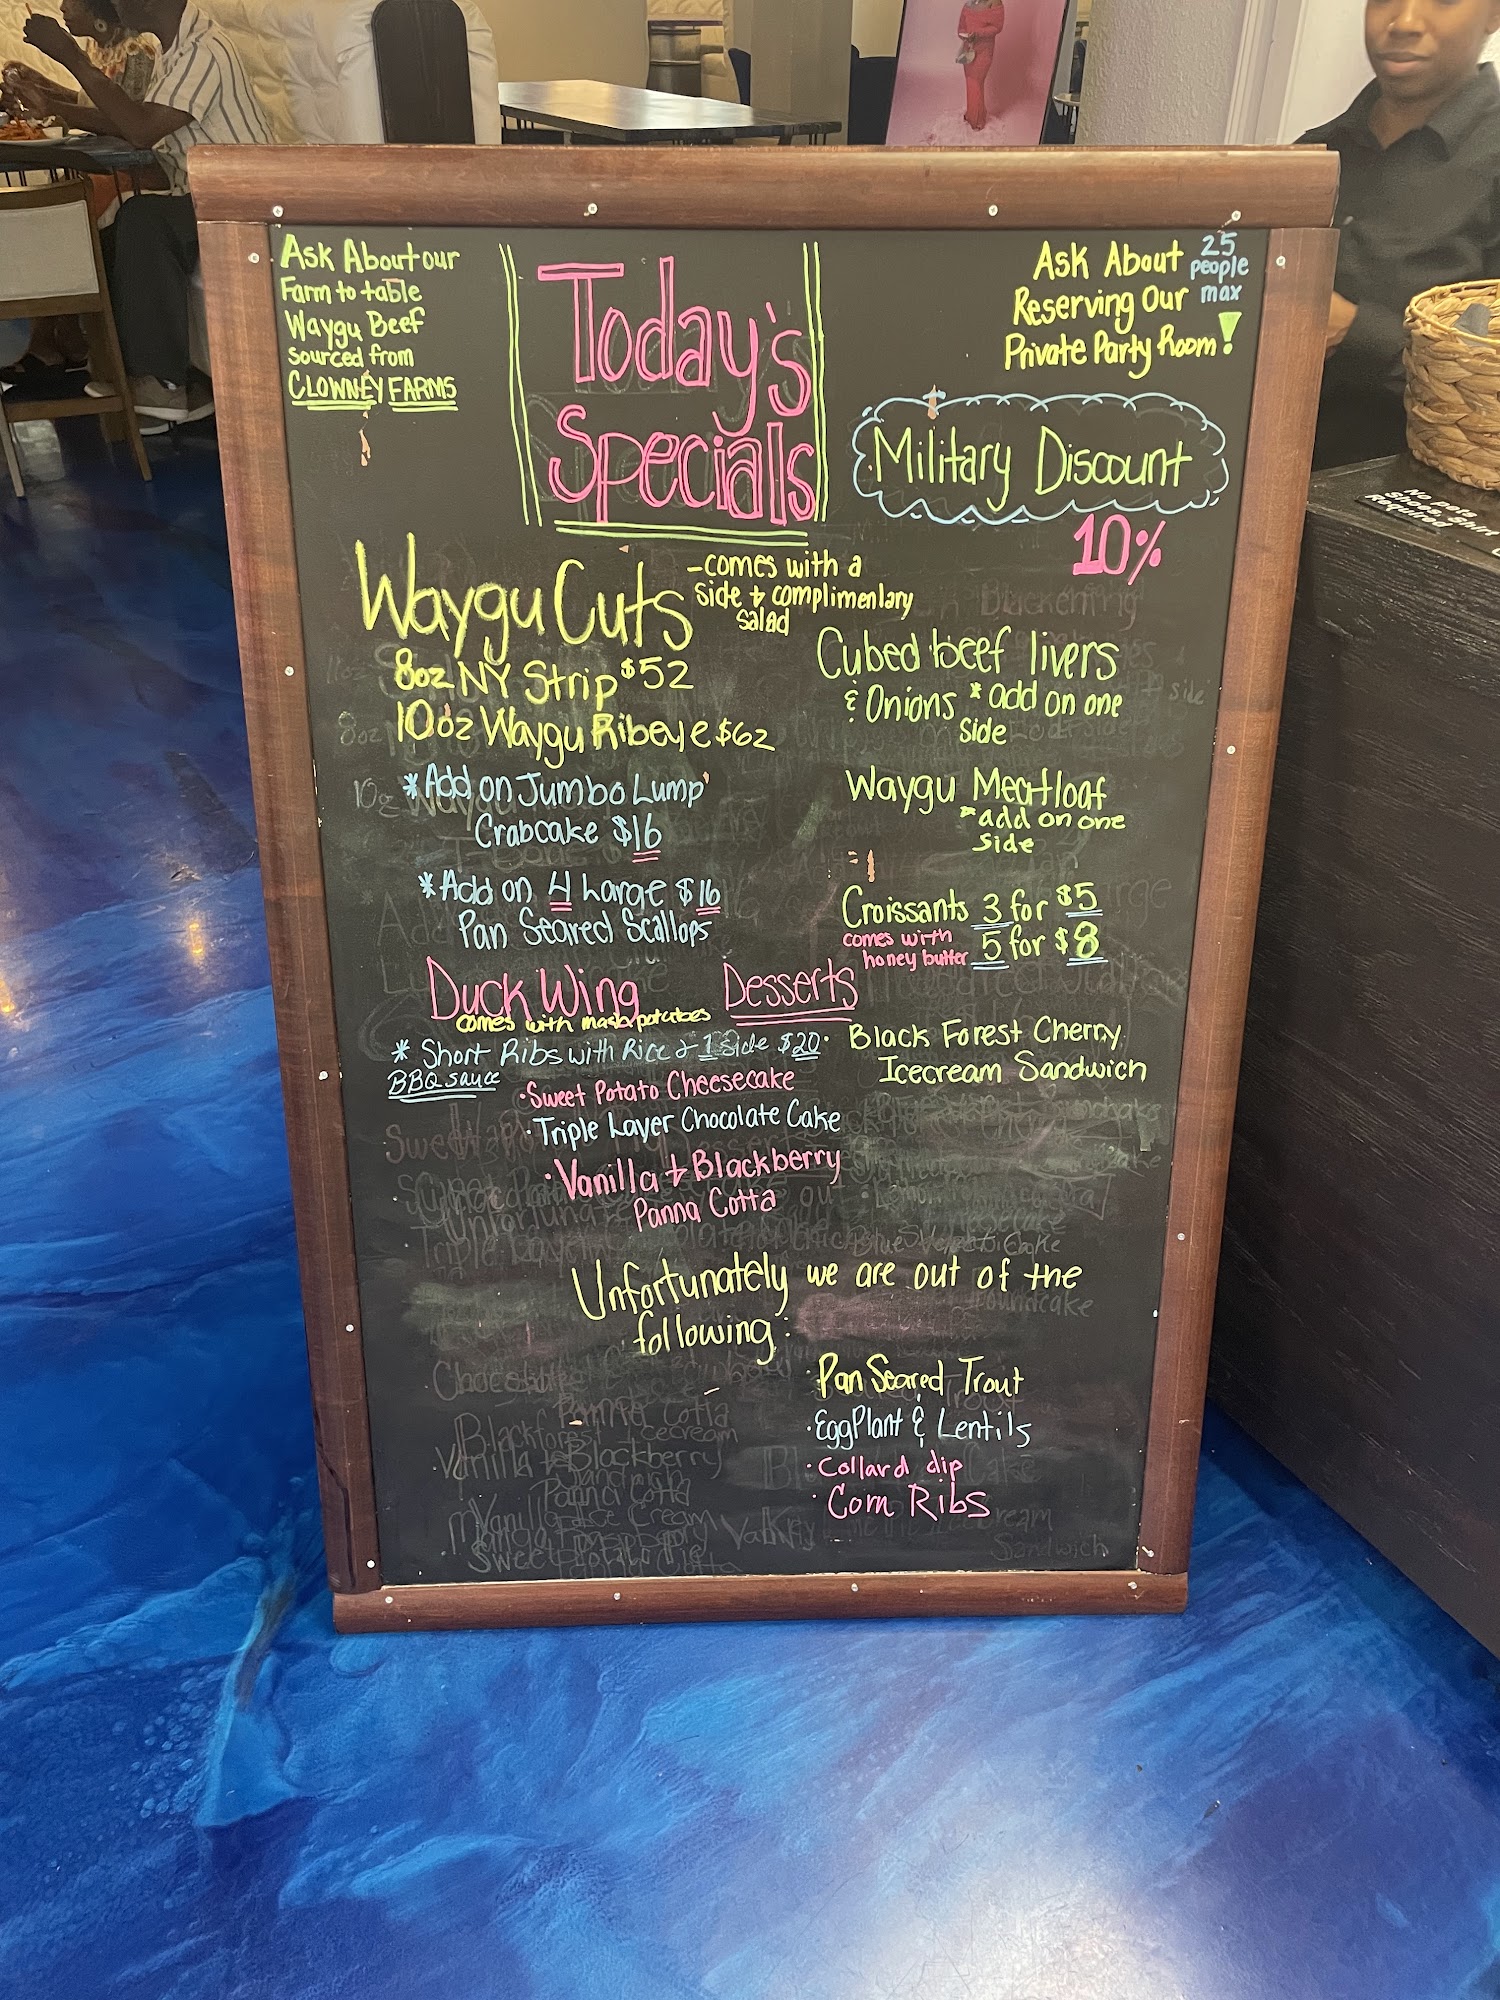 Ask About our
Farm to table
Waygu Beef
sourced from
CLOWNEY FARMS
Today's
Specials
Ask About
Reserving Our
Private Party Room!
25
people
max
Military Discount
10%
Waygu Cuts
-comes with a
side & complimentary
salad
8oz NY Strip $52
10oz Waygu Ribeye $62
*Add on Jumbo Lump
Crabcake $16
*Add on 4 Large $16
Pan Seared Scallops
Cubed beef livers
& Onions * add on one
side
Waygu Meatloaf
*add on one
side
Croissants 3 for $5
comes with
honey butter
5 for $8
Duck Wing
comes with mash potatoes
* Short Ribs with Rice & 1 Side $20
BBQ sauce
Desserts
·Sweet Potato Cheesecake
·Triple Layer Chocolate Cake
·Vanilla & Blackberry
Panna Cotta
· Black Forest Cherry
Icecream Sandwich
Unfortunately we are out of the
following:
·Pan Seared Trout
·EggPlant & Lentils
·Collard dip
·Corn Ribs
No Pets
Shoes, Shirt
Required